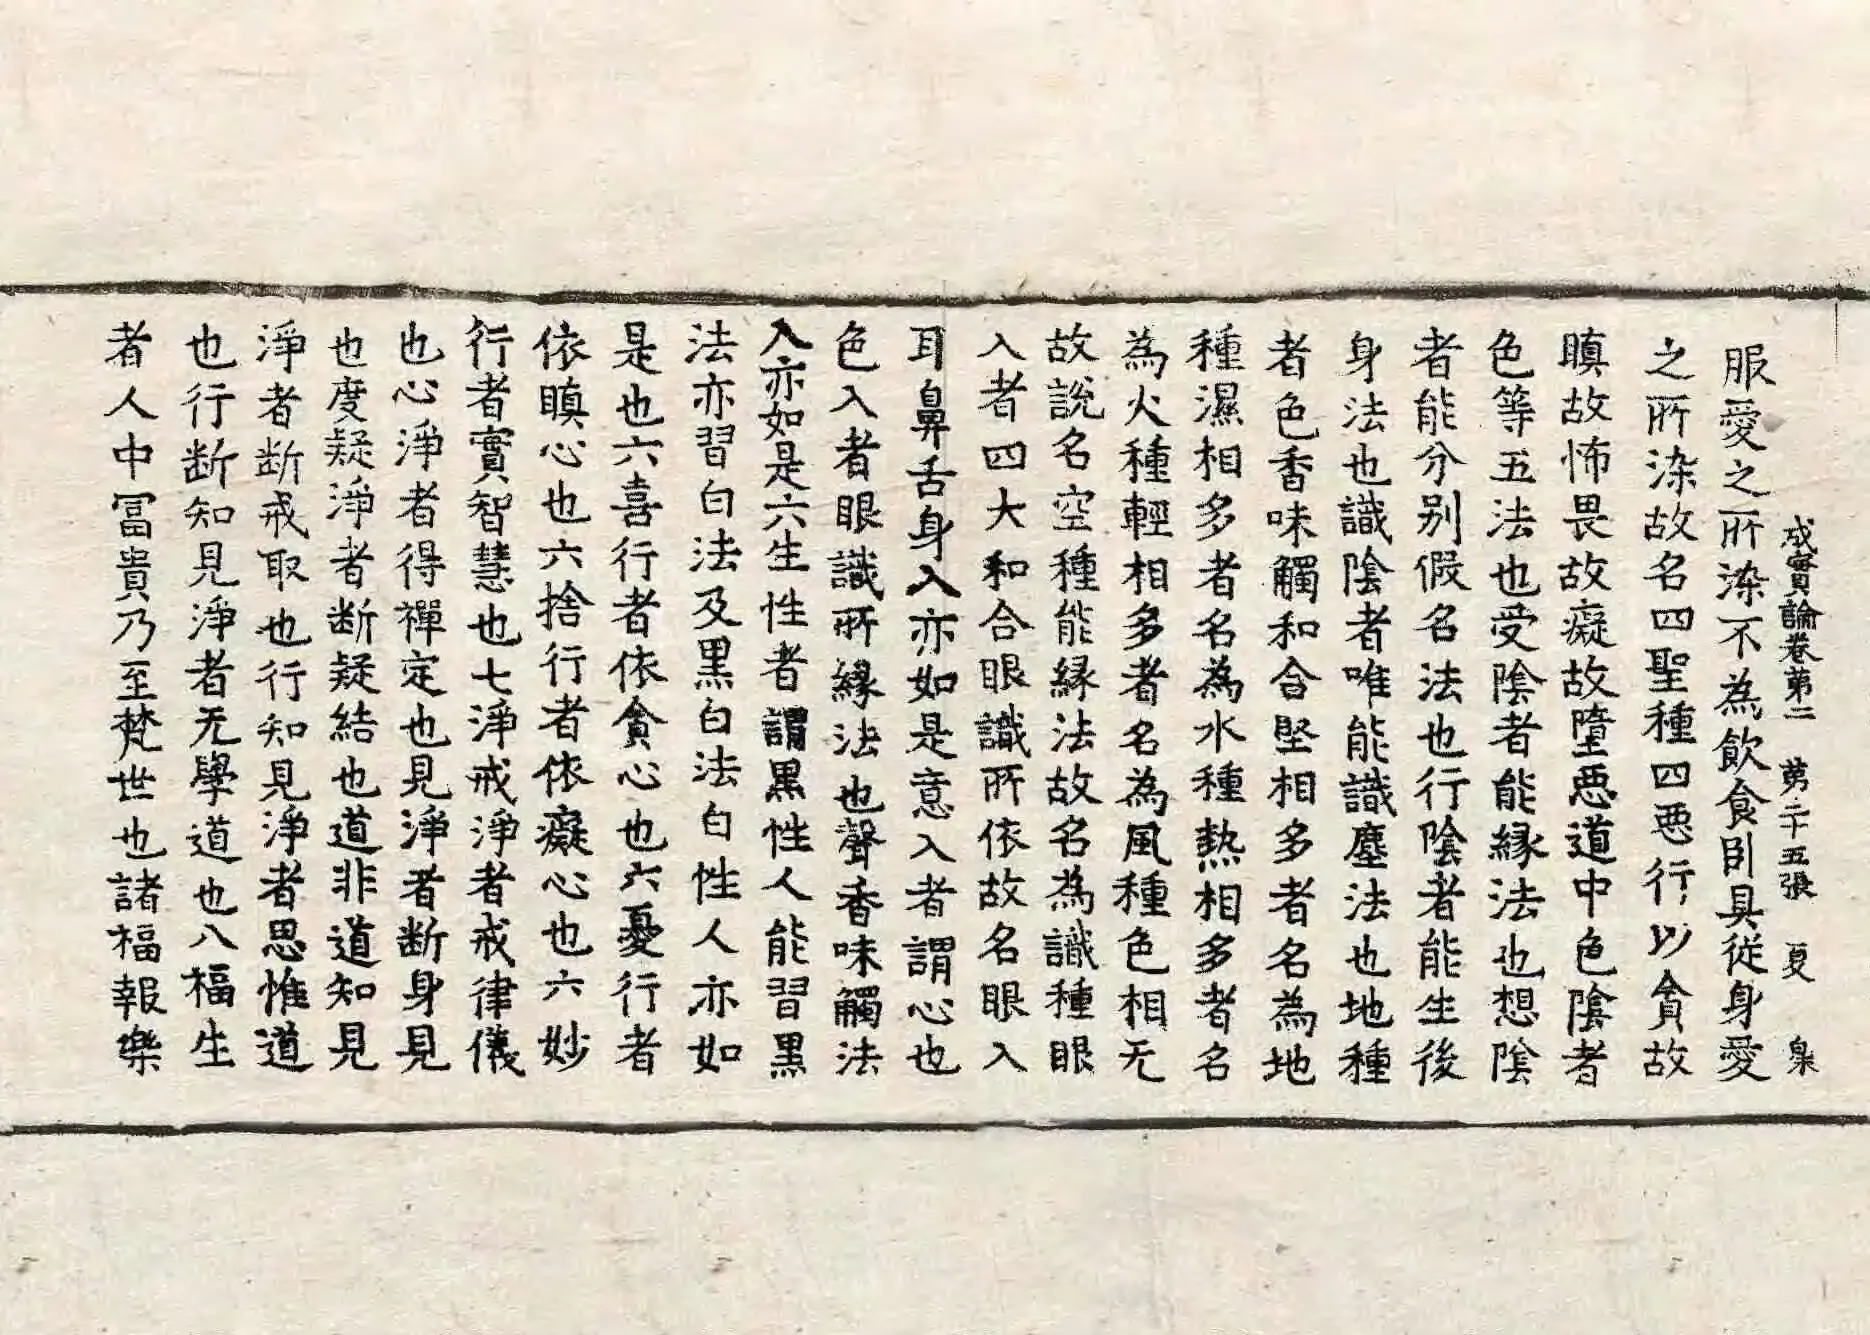 成實論卷第二 第二十五張 夏 梟
服愛之所染不為飲食卧具従身愛
之所染故名四聖種四惡行以貪故
瞋故怖畏故癡故墮惡道中色陰者
色等五法也受陰者能緣法也想陰
者能分别假名法也行陰者能生後
身法也識陰者唯能識塵法也地種
者色香味觸和合堅相多者名為地
種濕相多者名為水種熱相多者名
為火種輕相多者名為風種色相无
故說名空種能緣法故名為識種眼
入者四大和合眼識所依故名眼入
耳鼻舌身入亦如是意入者謂心也
色入者眼識所緣法也聲香味觸法
入亦如是六生性者謂黑性人能習黑
法亦習白法及黑白法白性人亦如
是也六喜行者依貪心也六憂行者
依瞋心也六捨行者依癡心也六妙
行者實智慧也七淨戒淨者戒律儀
也心淨者得禪定也見淨者断身見
也度疑淨者断疑結也道非道知見
淨者断戒取也行知見淨者思惟道
也行断知見淨者无學道也八福生
者人中冨貴乃至梵世也諸福報樂